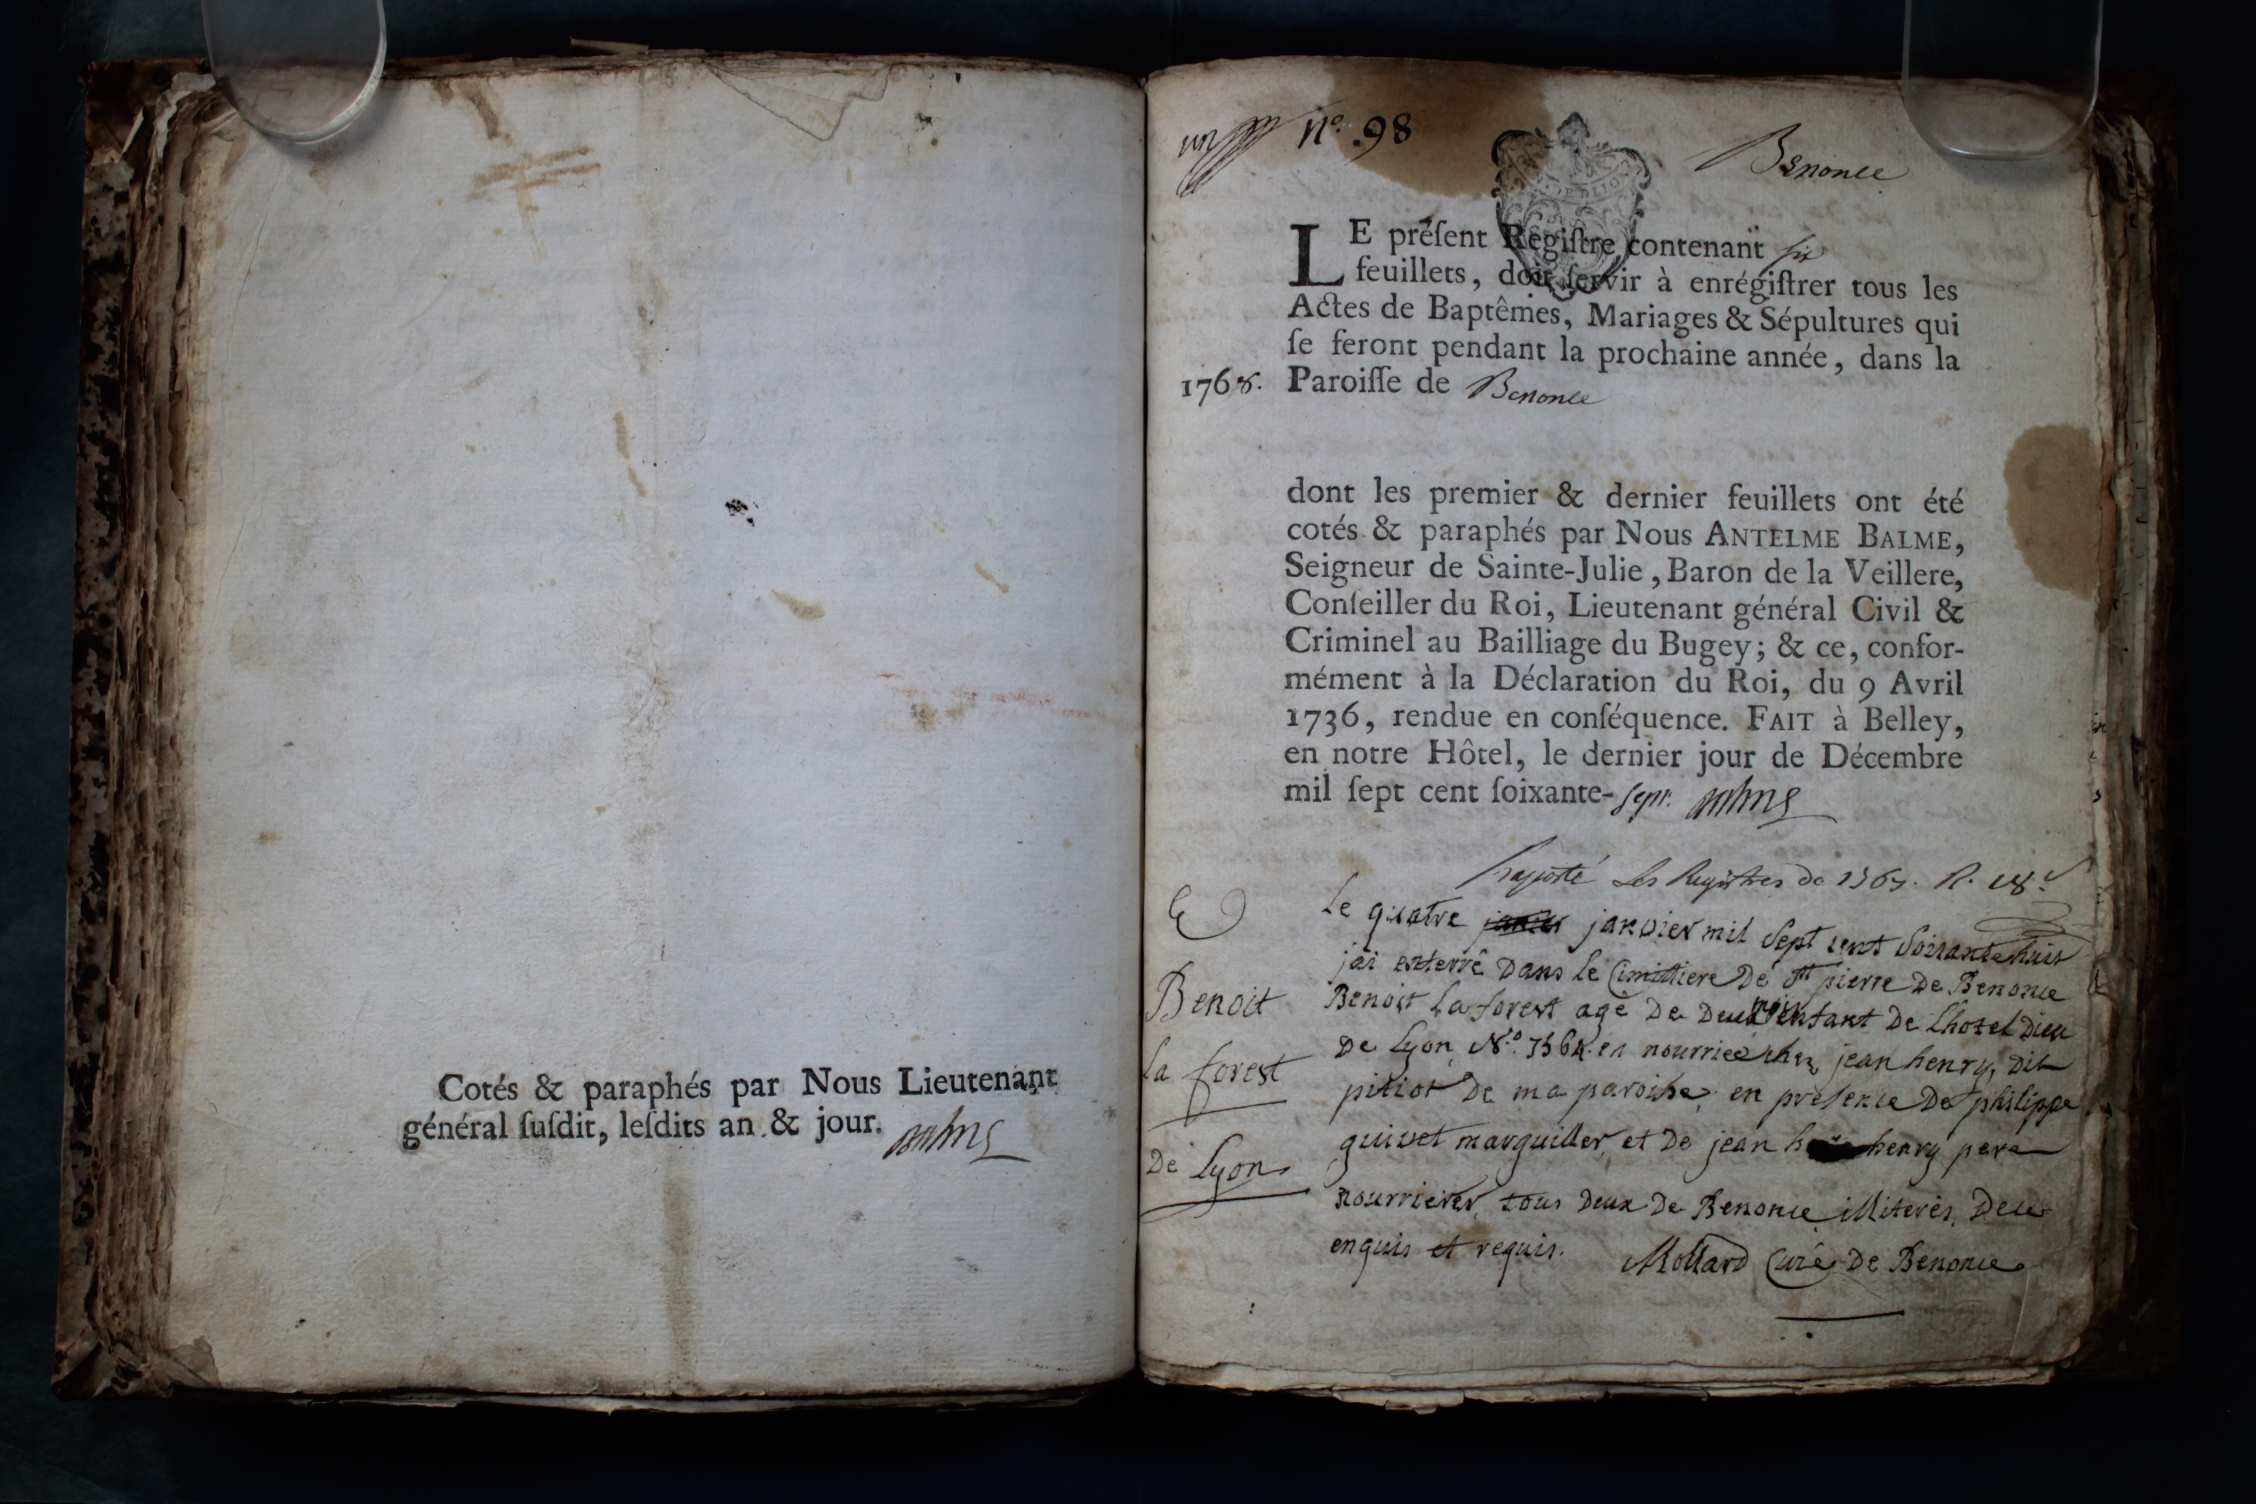 Cotés & paraphés par Nous Lieutenant
général ſuſdit, leſdits an & jour.
un
n.º 98
Benonce
LE préſent Regiſtre contenant six
feuillets, doit ſervir à enrégiſtrer tous les
Actes de Baptêmes, Mariages & Sépultures qui
ſe feront pendant la prochaine année, dans la
1768. Paroiſſe de Benonce
dont les premier & dernier feuillets ont été
cotés & paraphés par Nous ANTELME BALME,
Seigneur de Sainte-Julie, Baron de la Veillere,
Conſeiller du Roi, Lieutenant général Civil &
Criminel au Bailliage du Bugey; & ce, confor-
mément à la Déclaration du Roi, du 9 Avril
1736, rendue en conſéquence. FAIT à Belley,
en notre Hôtel, le dernier jour de Décembre
mil ſept cent ſoixante-sept.
les Registres de 1767.
Le quatre janvier mil sept cent soixante huit
jai enterré dans le Cimittiere De st pierre De Benonce
Benoit La forest agé De Deux mois enfant De Lhotel Dieu
De Lyon N.º 1564 en nourrice chez jean henry, dit
pitiot De ma paroisse, en presence De philippe
guivet marguiller, et De jean henry pere
nourricier, tous Deux De Benonce illiterés, De ce
enquis et requis. Mollard Curé De Benonce
Benoit
la forest
De Lyon